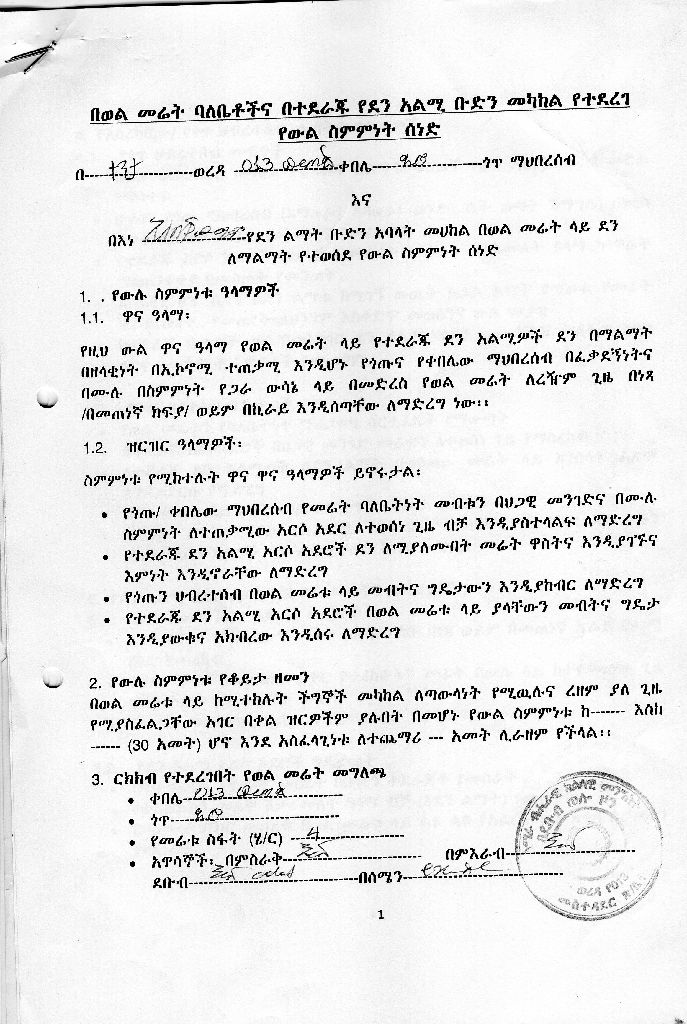 በወል መሬት ባለቤቶችና በተደራጁ የደን አልሚ ቡድን መካከል የተደረገ
የውል ስምምነት ሰነድ
በ----- -----ወረዳ ቀበሌ----- -----ጎጥ ማህበረሰብ
እና
በእነ የደን ልማት ቡድን አባላት መሀከል በወል መሬት ላይ ደን
ለማልማት የተወሰደ የውል ስምምነት ሰነድ
1. . የውሉ ስምምነቱ ዓላማዎች
1.1. ዋና ዓላማ፡
የዚህ ውል ዋና ዓላማ የወል መሬት ላይ የተደራጁ ደን አልሚዎች ደን በማልማት
በዘላቂነት በኢኮኖሚ ተጠቃሚ እንዲሆኑ የጎጡና የቀበሌው ማህበረሰብ በፈቃደኝነትና
በሙሉ በስምምነት የጋራ ውሳኔ ላይ በመድረስ የወል መሬት ለረዥም ጊዜ በነጻ
/በመጠነኛ ክፍያ/ ወይም በኪራይ እንዲሰጣቸው ለማድረግ ነው፡፡
1.2. ዝርዝር ዓላማዎች፡
ስምምነቱ የሚከተሉት ዋና ዋና ዓላማዎች ይኖሩታል፡
• የጎጡ/ ቀበሌው ማህበረሰብ የመሬት ባለቤትነት መብቱን በህጋዊ መንገድና በሙሉ
ስምምነት ለተጠቃሚው አርሶ አደር ለተወሰነ ጊዜ ብቻ እንዲያስተላልፍ ለማድረግ
• የተደራጁ ደን አልሚ አርሶ አደሮች ደን ለሚያለሙበት መሬት ዋስትና እንዲያገኙና
እምነት እንዲኖራቸው ለማድረግ
• የጎጡን ህብረተሰብ በወል መሬቱ ላይ መብትና ግዴታውን እንዲያከብር ለማድረግ
• የተደራጁ ደን አልሚ አርሶ አደሮች በወል መሬቱ ላይ ያላቸውን መብትና ግዴታ
እንዲያውቁና አክብረው እንዲሰሩ ለማድረግ
2. የውሉ ስምምነቱ የቆይታ ዘመን
በወል መሬቱ ላይ ከሚተከሉት ችግኞች መካከል ለጣውላነት የሚዉሉና ረዘም ያለ ጊዜ
የሚያስፈልጋቸው አገር በቀል ዝርዎችም ያሉበት በመሆኑ የውል ስምምነቱ ከ------- እስከ
------ (30 አመት) ሆኖ እንደ አስፈላጊነቱ ለተጨማሪ --- አመት ሊራዘም የችላል፡፡
3. ርክክብ የተደረገበት የወል መሬት መግለጫ
• ቀበሌ
• ጎጥ
• የመሬቱ ስፋት (ሄ/ር) 4
• አዋሳኞች፡ በምስራቅ በምእራብ
ደቡብ በሰሜን
1